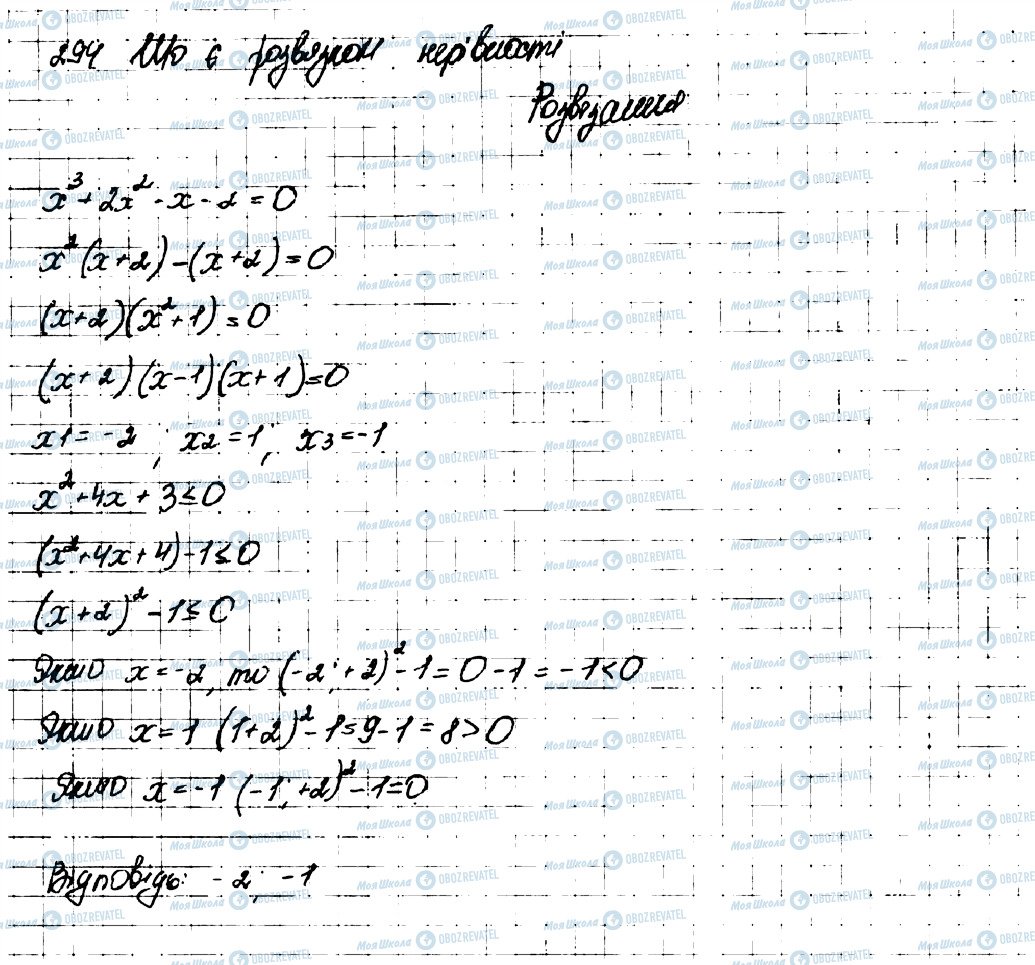 294 Що є розвязком нерівності
Розвязання
x³ + 2x² - x - 2 = 0
x²(x+2) - (x+2) = 0
(x+2)(x²+1) = 0
(x+2)(x-1)(x+1) = 0
x1 = -2 ; x2 = 1 ; x3 = -1
x² + 4x + 3 ≤ 0
(x²+4x+4) - 1 ≤ 0
(x+2)² - 1 ≤ 0
Якщо x = -2, то (-2 + 2)² - 1 = 0 - 1 = -1 < 0
Якщо x = 1 (1+2)² - 1 = 9 - 1 = 8 > 0
Якщо x = -1 (-1 + 2)² - 1 = 0
Відповідь: -2; -1
Моя Школа OBOZREVATEL